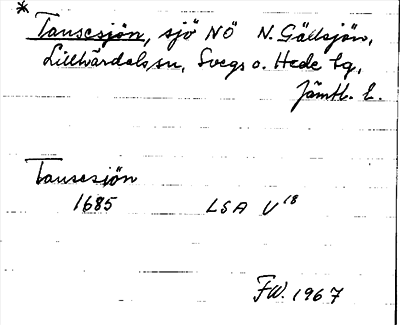 *
Tansesjön, sjö NÖ N. Gällsjön,
Lillhärdals sn, Svegs o. Hede tg,
Jämtl. L.
Tansesjön
1685 LSA V 18
FW. 1967